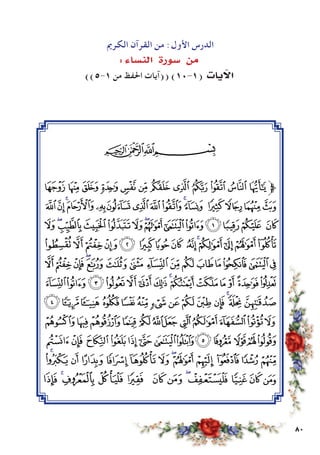 الدرس الأول: من القرآن الكريم
من سورة النساء:
الآيات (١-١٠) ((آيات الحفظ من ١-٥))
بِسْمِ ٱللَّهِ ٱلرَّحْمَٰنِ ٱلرَّحِيمِ
﴿ يَٰٓأَيُّهَا ٱلنَّاسُ ٱتَّقُوا۟ رَبَّكُمُ ٱلَّذِى خَلَقَكُم مِّن نَّفْسٍ وَٰحِدَةٍ وَخَلَقَ مِنْهَا زَوْجَهَا
وَبَثَّ مِنْهُمَا رِجَالًا كَثِيرًا وَنِسَآءً ۚ وَٱتَّقُوا۟ ٱللَّهَ ٱلَّذِى تَسَآءَلُونَ بِهِۦ وَٱلْأَرْحَامَ ۚ إِنَّ ٱللَّهَ
كَانَ عَلَيْكُمْ رَقِيبًا ١ وَءَاتُوا۟ ٱلْيَتَٰمَىٰٓ أَمْوَٰلَهُمْ ۖ وَلَا تَتَبَدَّلُوا۟ ٱلْخَبِيثَ بِٱلطَّيِّبِ ۖ وَلَا
تَأْكُلُوٓا۟ أَمْوَٰلَهُمْ إِلَىٰٓ أَمْوَٰلِكُمْ ۚ إِنَّهُۥ كَانَ حُوبًا كَبِيرًا ٢ وَإِنْ خِفْتُمْ أَلَّا تُقْسِطُوا۟
فِى ٱلْيَتَٰمَىٰ فَٱنكِحُوا۟ مَا طَابَ لَكُم مِّنَ ٱلنِّسَآءِ مَثْنَىٰ وَثُلَٰثَ وَرُبَٰعَ ۖ فَإِنْ خِفْتُمْ أَلَّا
تَعْدِلُوا۟ فَوَٰحِدَةً أَوْ مَا مَلَكَتْ أَيْمَٰنُكُمْ ۚ ذَٰلِكَ أَدْنَىٰٓ أَلَّا تَعُولُوا۟ ٣ وَءَاتُوا۟ ٱلنِّسَآءَ
صَدُقَٰتِهِنَّ نِحْلَةً ۚ فَإِن طِبْنَ لَكُمْ عَن شَىْءٍ مِّنْهُ نَفْسًا فَكُلُوهُ هَنِيٓـًٔا مَّرِيٓـًٔا ٤
وَلَا تُؤْتُوا۟ ٱلسُّفَهَآءَ أَمْوَٰلَكُمُ ٱلَّتِى جَعَلَ ٱللَّهُ لَكُمْ قِيَٰمًا وَٱرْزُقُوهُمْ فِيهَا وَٱكْسُوهُمْ
وَقُولُوا۟ لَهُمْ قَوْلًا مَّعْرُوفًا ٥ وَٱبْتَلُوا۟ ٱلْيَتَٰمَىٰ حَتَّىٰٓ إِذَا بَلَغُوا۟ ٱلنِّكَاحَ فَإِنْ ءَانَسْتُم
مِّنْهُمْ رُشْدًا فَٱدْفَعُوٓا۟ إِلَيْهِمْ أَمْوَٰلَهُمْ ۖ وَلَا تَأْكُلُوهَآ إِسْرَافًا وَبِدَارًا أَن يَكْبَرُوا۟ ۚ
وَمَن كَانَ غَنِيًّا فَلْيَسْتَعْفِفْ ۖ وَمَن كَانَ فَقِيرًا فَلْيَأْكُلْ بِٱلْمَعْرُوفِ ۚ فَإِذَا
٨٠